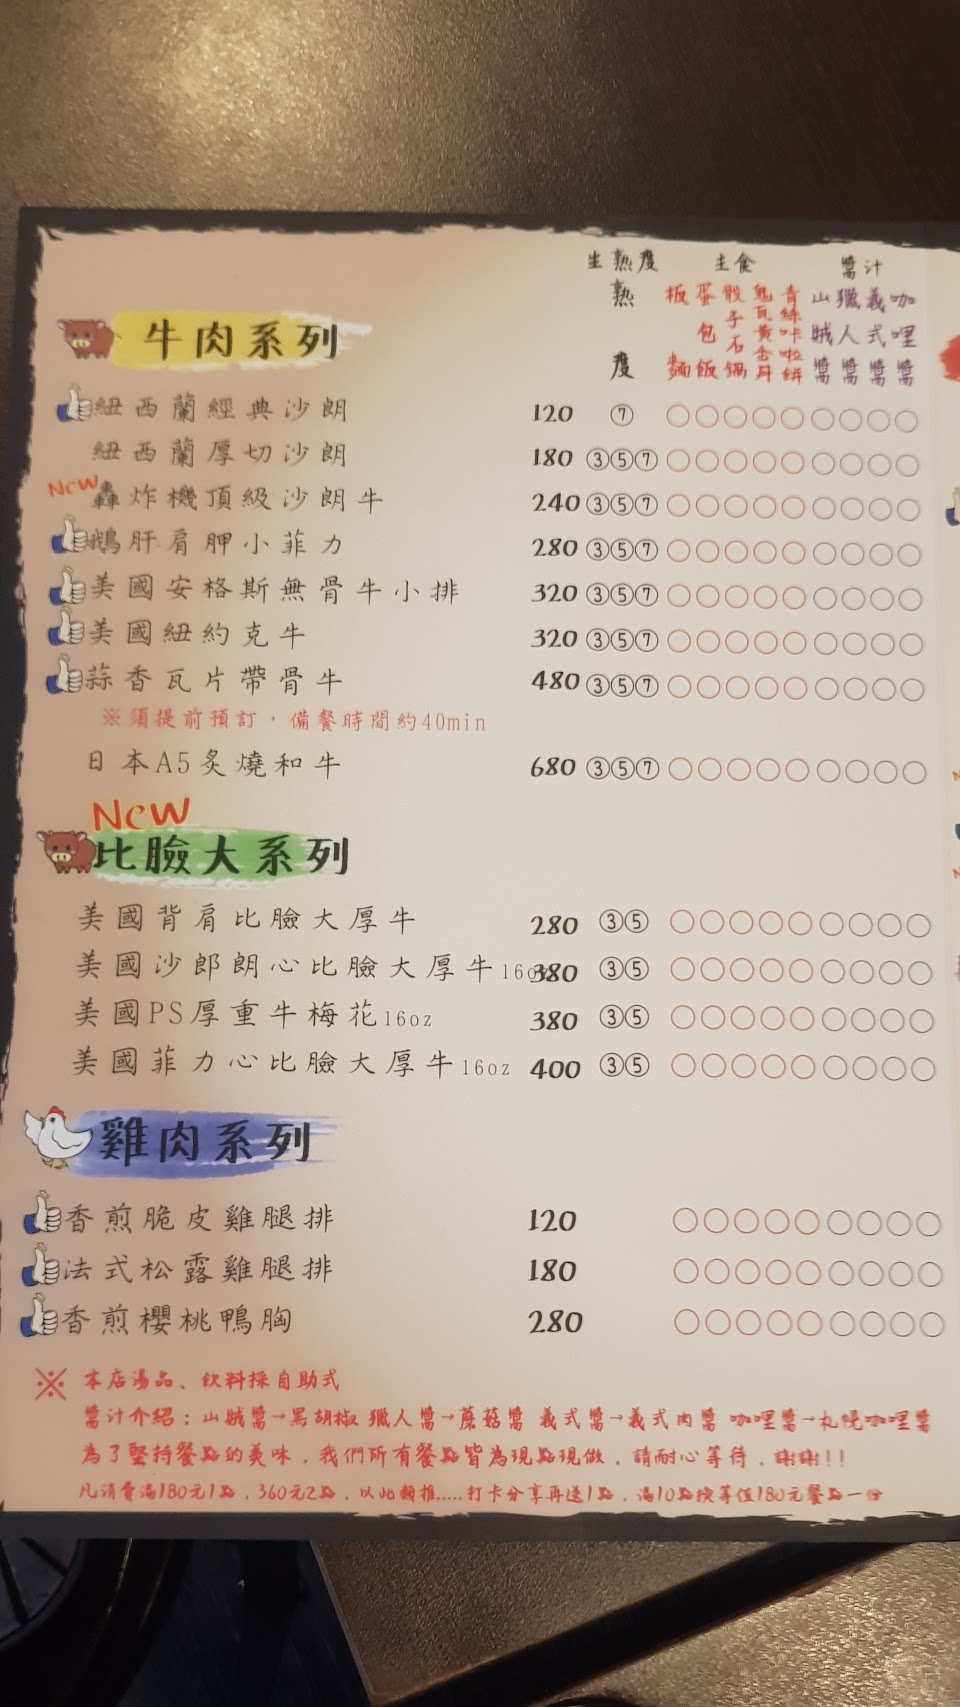 生熟度 主食 醬汁
熟度 板麵 蛋包飯 骰子石鍋 鬼瓦黃金丼 青絲咔啦餅 山賊醬 獵人醬 義式醬 咖哩醬
牛肉系列
紐西蘭經典沙朗 120 ⑦
紐西蘭厚切沙朗 180 ③⑤⑦
New 轟炸機頂級沙朗牛 240 ③⑤⑦
鵝肝肩胛小菲力 280 ③⑤⑦
美國安格斯無骨牛小排 320 ③⑤⑦
美國紐約克牛 320 ③⑤⑦
蒜香瓦片帶骨牛 480 ③⑤⑦
※須提前預訂，備餐時間約40min
日本A5炙燒和牛 680 ③⑤⑦
New
比臉大系列
美國背肩比臉大厚牛 280 ③⑤
美國沙郎朗心比臉大厚牛16oz 380 ③⑤
美國PS厚重牛梅花16oz 380 ③⑤
美國菲力心比臉大厚牛16oz 400 ③⑤
雞肉系列
香煎脆皮雞腿排 120
法式松露雞腿排 180
香煎櫻桃鴨胸 280
※ 本店湯品、飲料採自助式
醬汁介紹：山賊醬→黑胡椒 獵人醬→蘑菇醬 義式醬→義式肉醬 咖哩醬→札幌咖哩醬
為了堅持餐點的美味，我們所有餐點皆為現點現做，請耐心等待，謝謝!!
凡消費滿180元1點，360元2點，以此類推.....打卡分享再送1點，滿10點換等值180元餐點一份